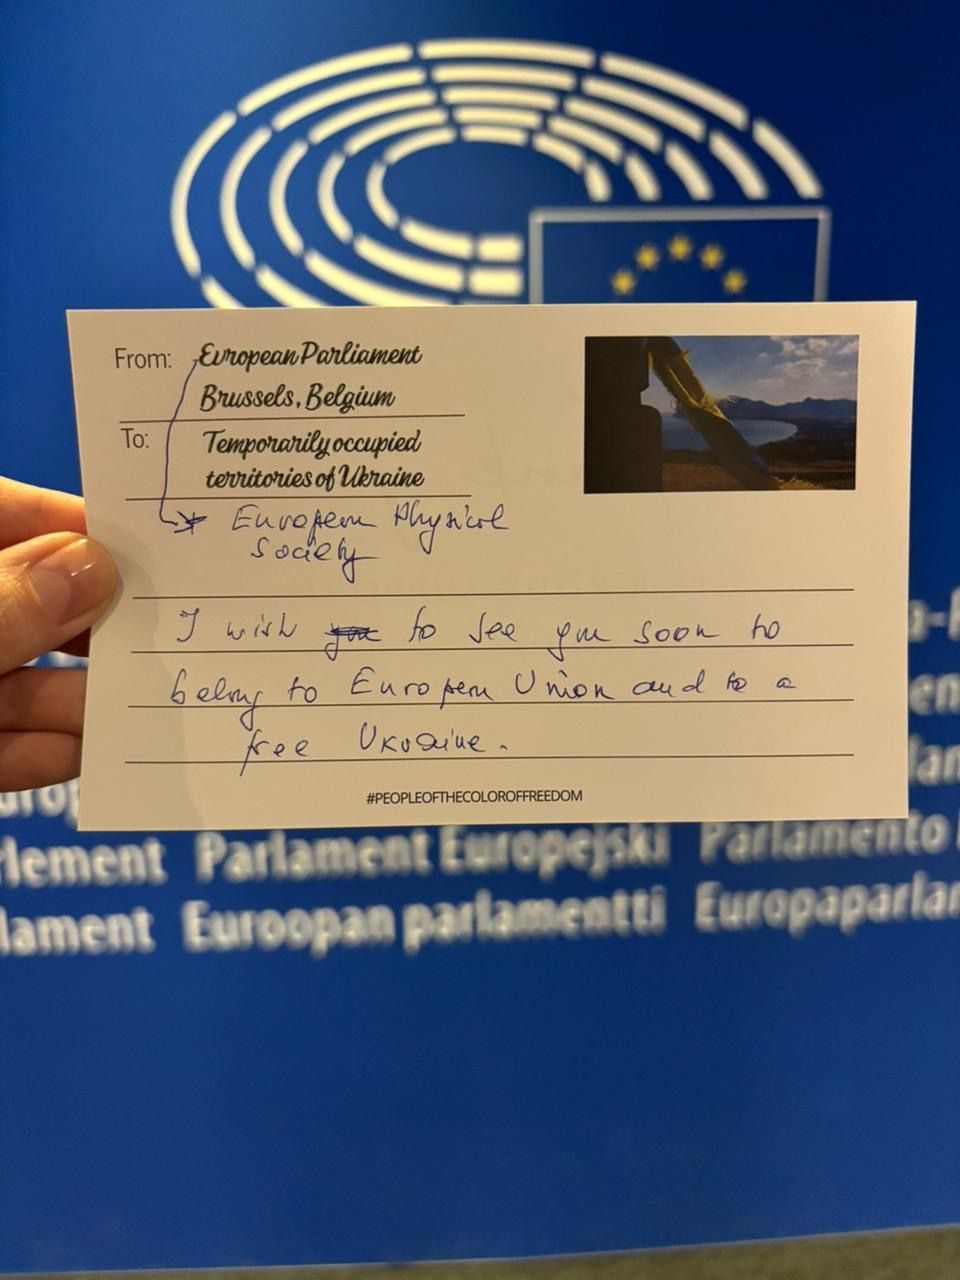 From: European Parliament
Brussels, Belgium
To: Temporarily occupied
territories of Ukraine
European Physical
Society
I wish you to see you soon to
belong to European Union and to a
free Ukraine.
#PEOPLEOFTHECOLOROFFREEDOM
Parlament Europejski Parlamento
Euroopan parlamentti Europaparla